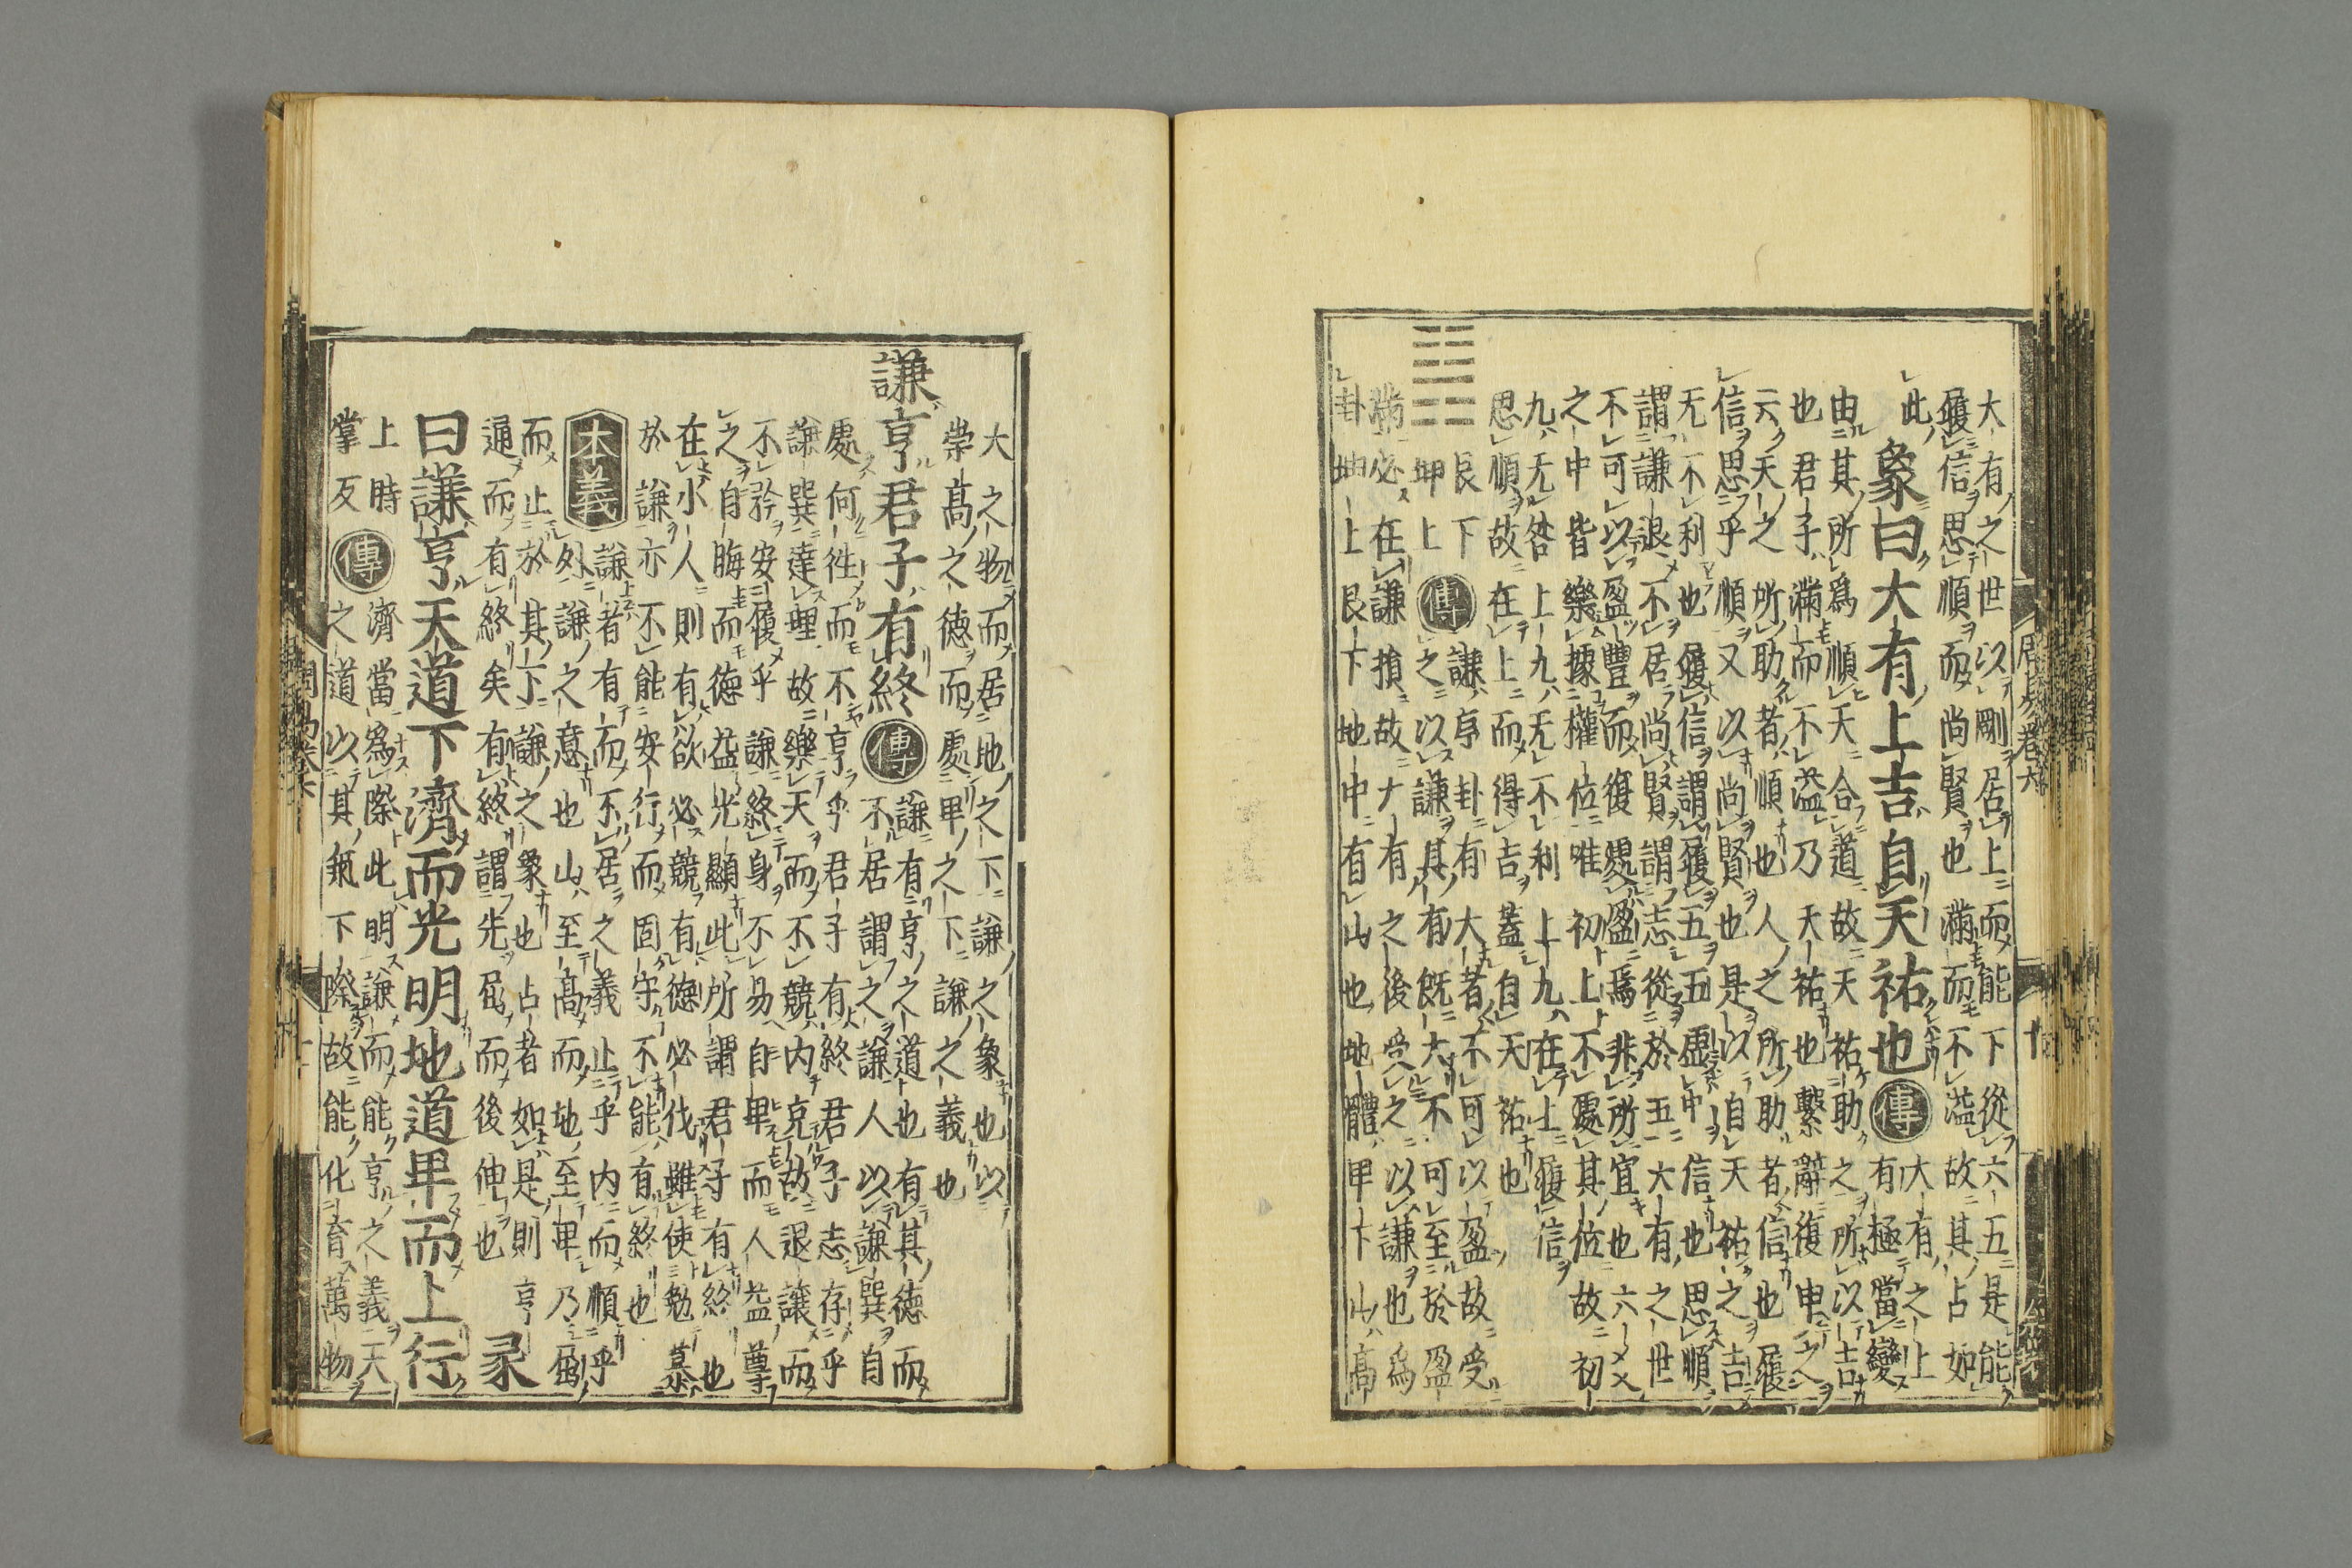 大有之世以剛居上而能下從六五是能
履信思順而尚賢也滿而不溢故其占如
此
象曰大有上吉自天祐也傳大有之上
有極當變
由其所爲順天合道故天祐助之所以吉
也君子滿而不溢乃天祐也繫辭復申之
云天之所助者順也人之所助者信也履
信思乎順又以尚賢也是以自天祐之吉
无不利也履信謂履五五虛中信也思順
謂謙退不居尚賢謂志從於五大有之世
不可以盈豐而復處盈焉非所宜也六爻
之中皆樂據權位唯初上不處其位故初
九无咎上九无不利上九在上履信
思順故在上而得吉蓋自天祐也
䷎
艮下
坤上
傳謙序卦有大者不可以盈故受
之以謙其有既大不可至於盈
滿必在謙損故大有之後受之以謙也爲
卦坤上艮下地中有山也地體卑下山高
周易卷六 十
大之物而居地之下謙之象也以
崇高之德而處卑之下謙之義也
謙亨君子有終傳謙有亨之道也有其德而
不居謂之謙人以謙巽自
處何徃而不亨乎君子有終君子志存乎
謙巽達理故樂天而不競内充故退讓而
不矜安履乎謙終身不易自卑而人益尊
之自晦而德益光顯此所謂君子有終也
在小人則有欲必競有德必伐雖使勉慕
於謙亦不能安行而固守不能有終也
本義謙者有而不居之義止乎内而順乎
外謙之意也山至高而地至卑乃屈
而止於其下謙之象也占者如是則亨
通而有終矣有終謂先屈而後伸也彖
曰謙亨天道下濟而光明地道卑而上行
上時
掌反
傳濟當爲際此明謙而能亨之義天
之道以其氣下際故能化育萬物